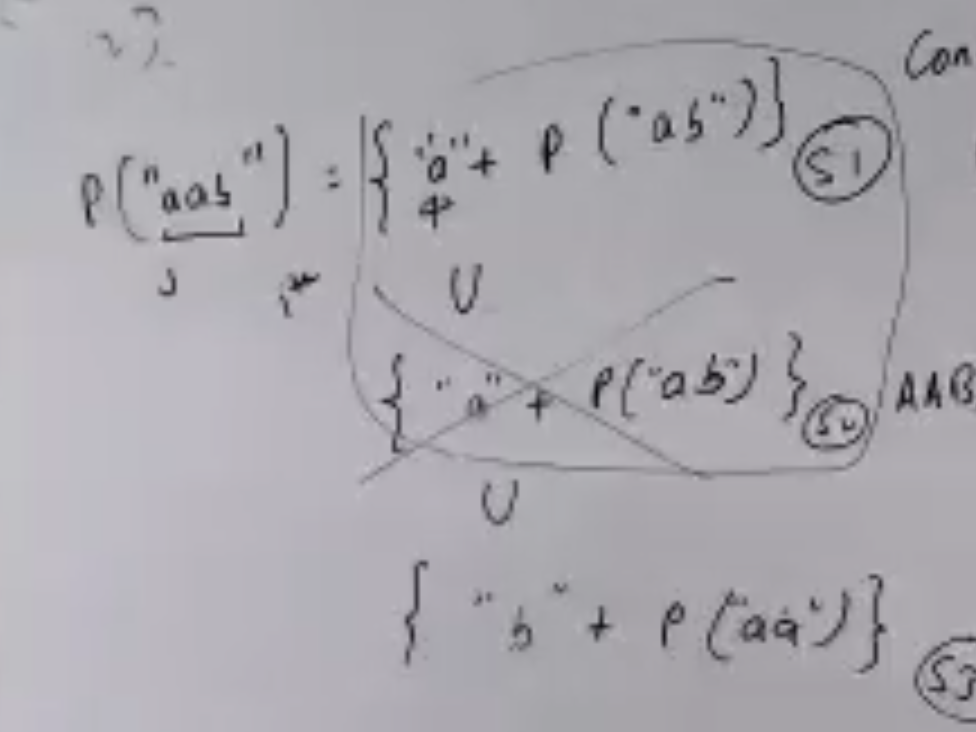 Con
P("aab") = { "a" + P("ab")} S1
U
{ "a" + P("ab") } S2
AAB
U
{ "b" + P("aa")} S3